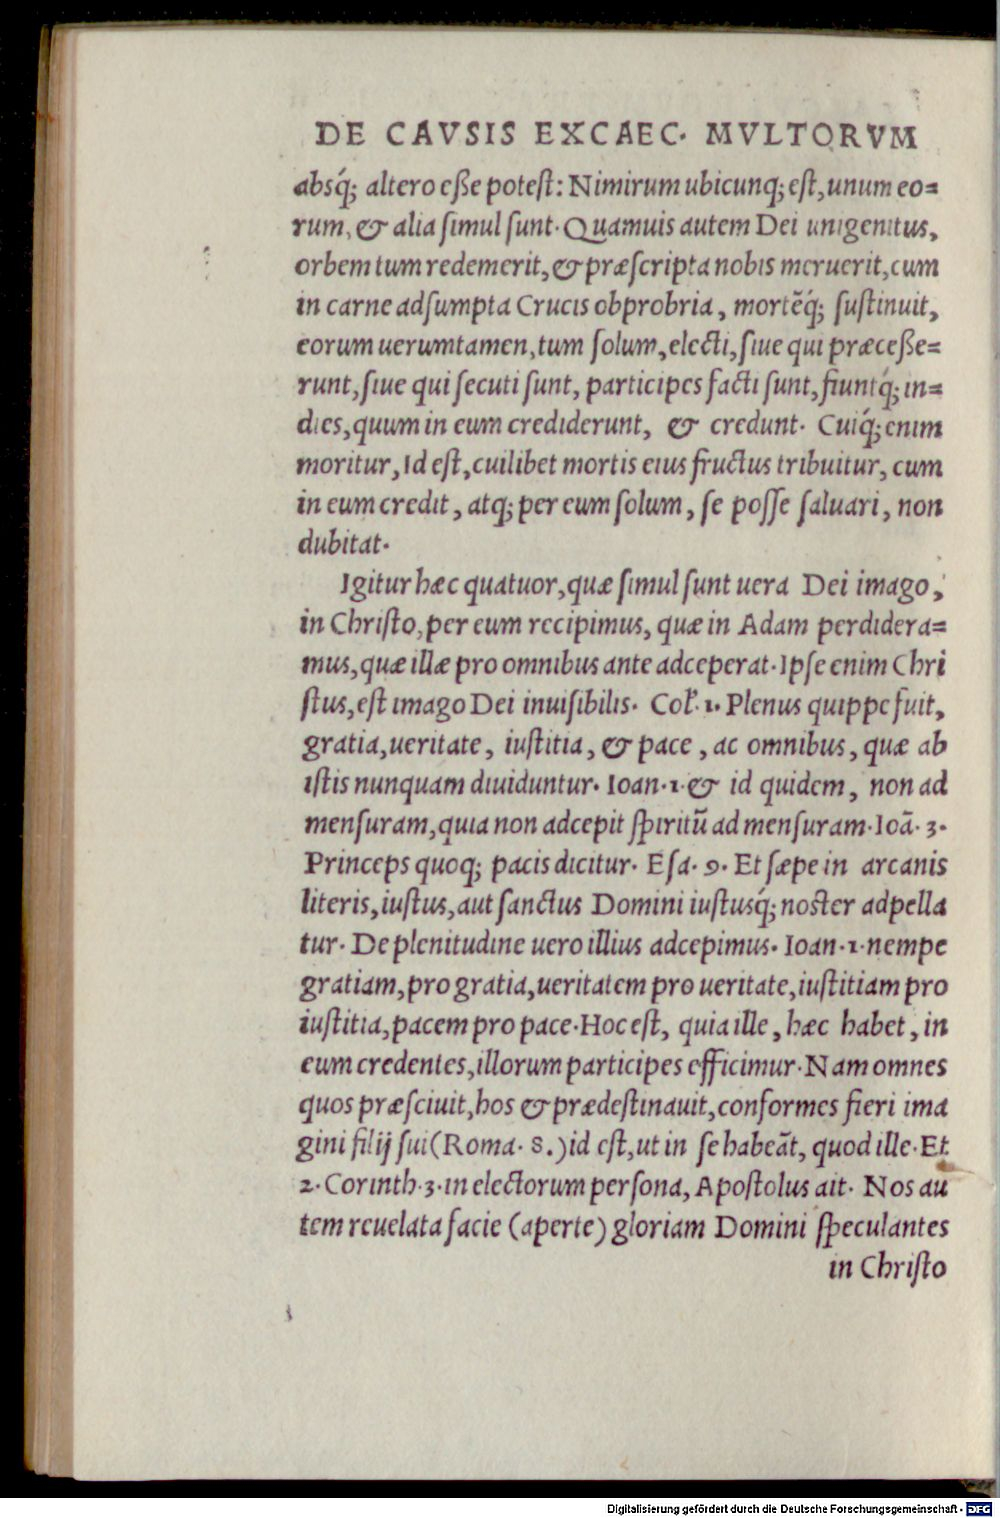 DE CAVSIS EXCAEC. MVLTORVM
absq́; altero eße potest: Nimirum ubicunq; est, unum eo=
rum, & alia simul sunt. Quamuis autem Dei unigenitus,
orbem tum redemerit, & præscripta nobis meruerit, cum
in carne adsumpta Crucis obprobria, mortẽq́; sustinuit,
eorum uerumtamen, tum solum, electi, siue qui præceße=
runt, siue qui secuti sunt, participes facti sunt, fiuntq́; in=
dies, quum in eum crediderunt, & credunt. Cuiq́; enim
moritur, Id est, cuilibet mortis eius fructus tribuitur, cum
in eum credit, atq; per eum solum, se posse saluari, non
dubitat.
Igitur hæc quatuor, quæ simul sunt uera Dei imago,
in Christo, per eum recipimus, quæ in Adam perdidera=
mus, quæ illæ pro omnibus ante adceperat. Ipse enim Chri
stus, est imago Dei inuisibilis. Col. 1. Plenus quippe fuit,
gratia, ueritate, iustitia, & pace, ac omnibus, quæ ab
istis nunquam diuiduntur. Ioan. 1. & id quidem, non ad
mensuram, quia non adcepit spiritũ ad mensuram. Ioã. 3.
Princeps quoq; pacis dicitur. Esa. 9. Et sæpe in arcanis
literis, iustus, aut sanctus Domini iustusq́; noster adpella
tur. De plenitudine uero illius adcepimus. Ioan. 1. nempe
gratiam, pro gratia, ueritatem pro ueritate, iustitiam pro
iustitia, pacem pro pace. Hoc est, quia ille, hæc habet, in
eum credentes, illorum participes efficimur. Nam omnes
quos præsciuit, hos & prædestinauit, conformes fieri ima
gini filij sui (Roma. 8.) id est, ut in se habeãt, quod ille. Et
2. Corinth. 3. in electorum persona, Apostolus ait. Nos au
tem reuelata facie (aperte) gloriam Domini speculantes
in Christo
Digitalisierung gefördert durch die Deutsche Forschungsgemeinschaft - DFG